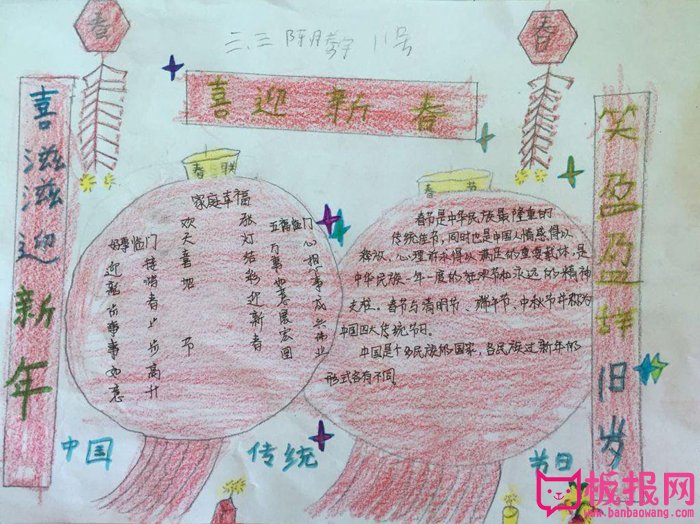 三.三 11号
春
春
喜迎新春
喜滋滋迎新年
笑盈盈辞旧岁
春联
家庭幸福
张灯结彩迎新春
欢天喜地 节
五福临门
心想事成兴伟业
万事如意展宏图
好事临门
迎新步步高升
事事如意
春节
春节是中华民族最隆重的
传统佳节,同时也是中国人情感得以
释放、心理诉求得以满足的重要载体,是
中华民族一年一度的狂欢节和永远的精神
支柱。春节与清明节、端午节、中秋节并称为
中国四大传统节日。
中国是个多民族的国家,各民族过新年的
形式各有不同
中国 传统 节日
板报网
www.banbaowang.com